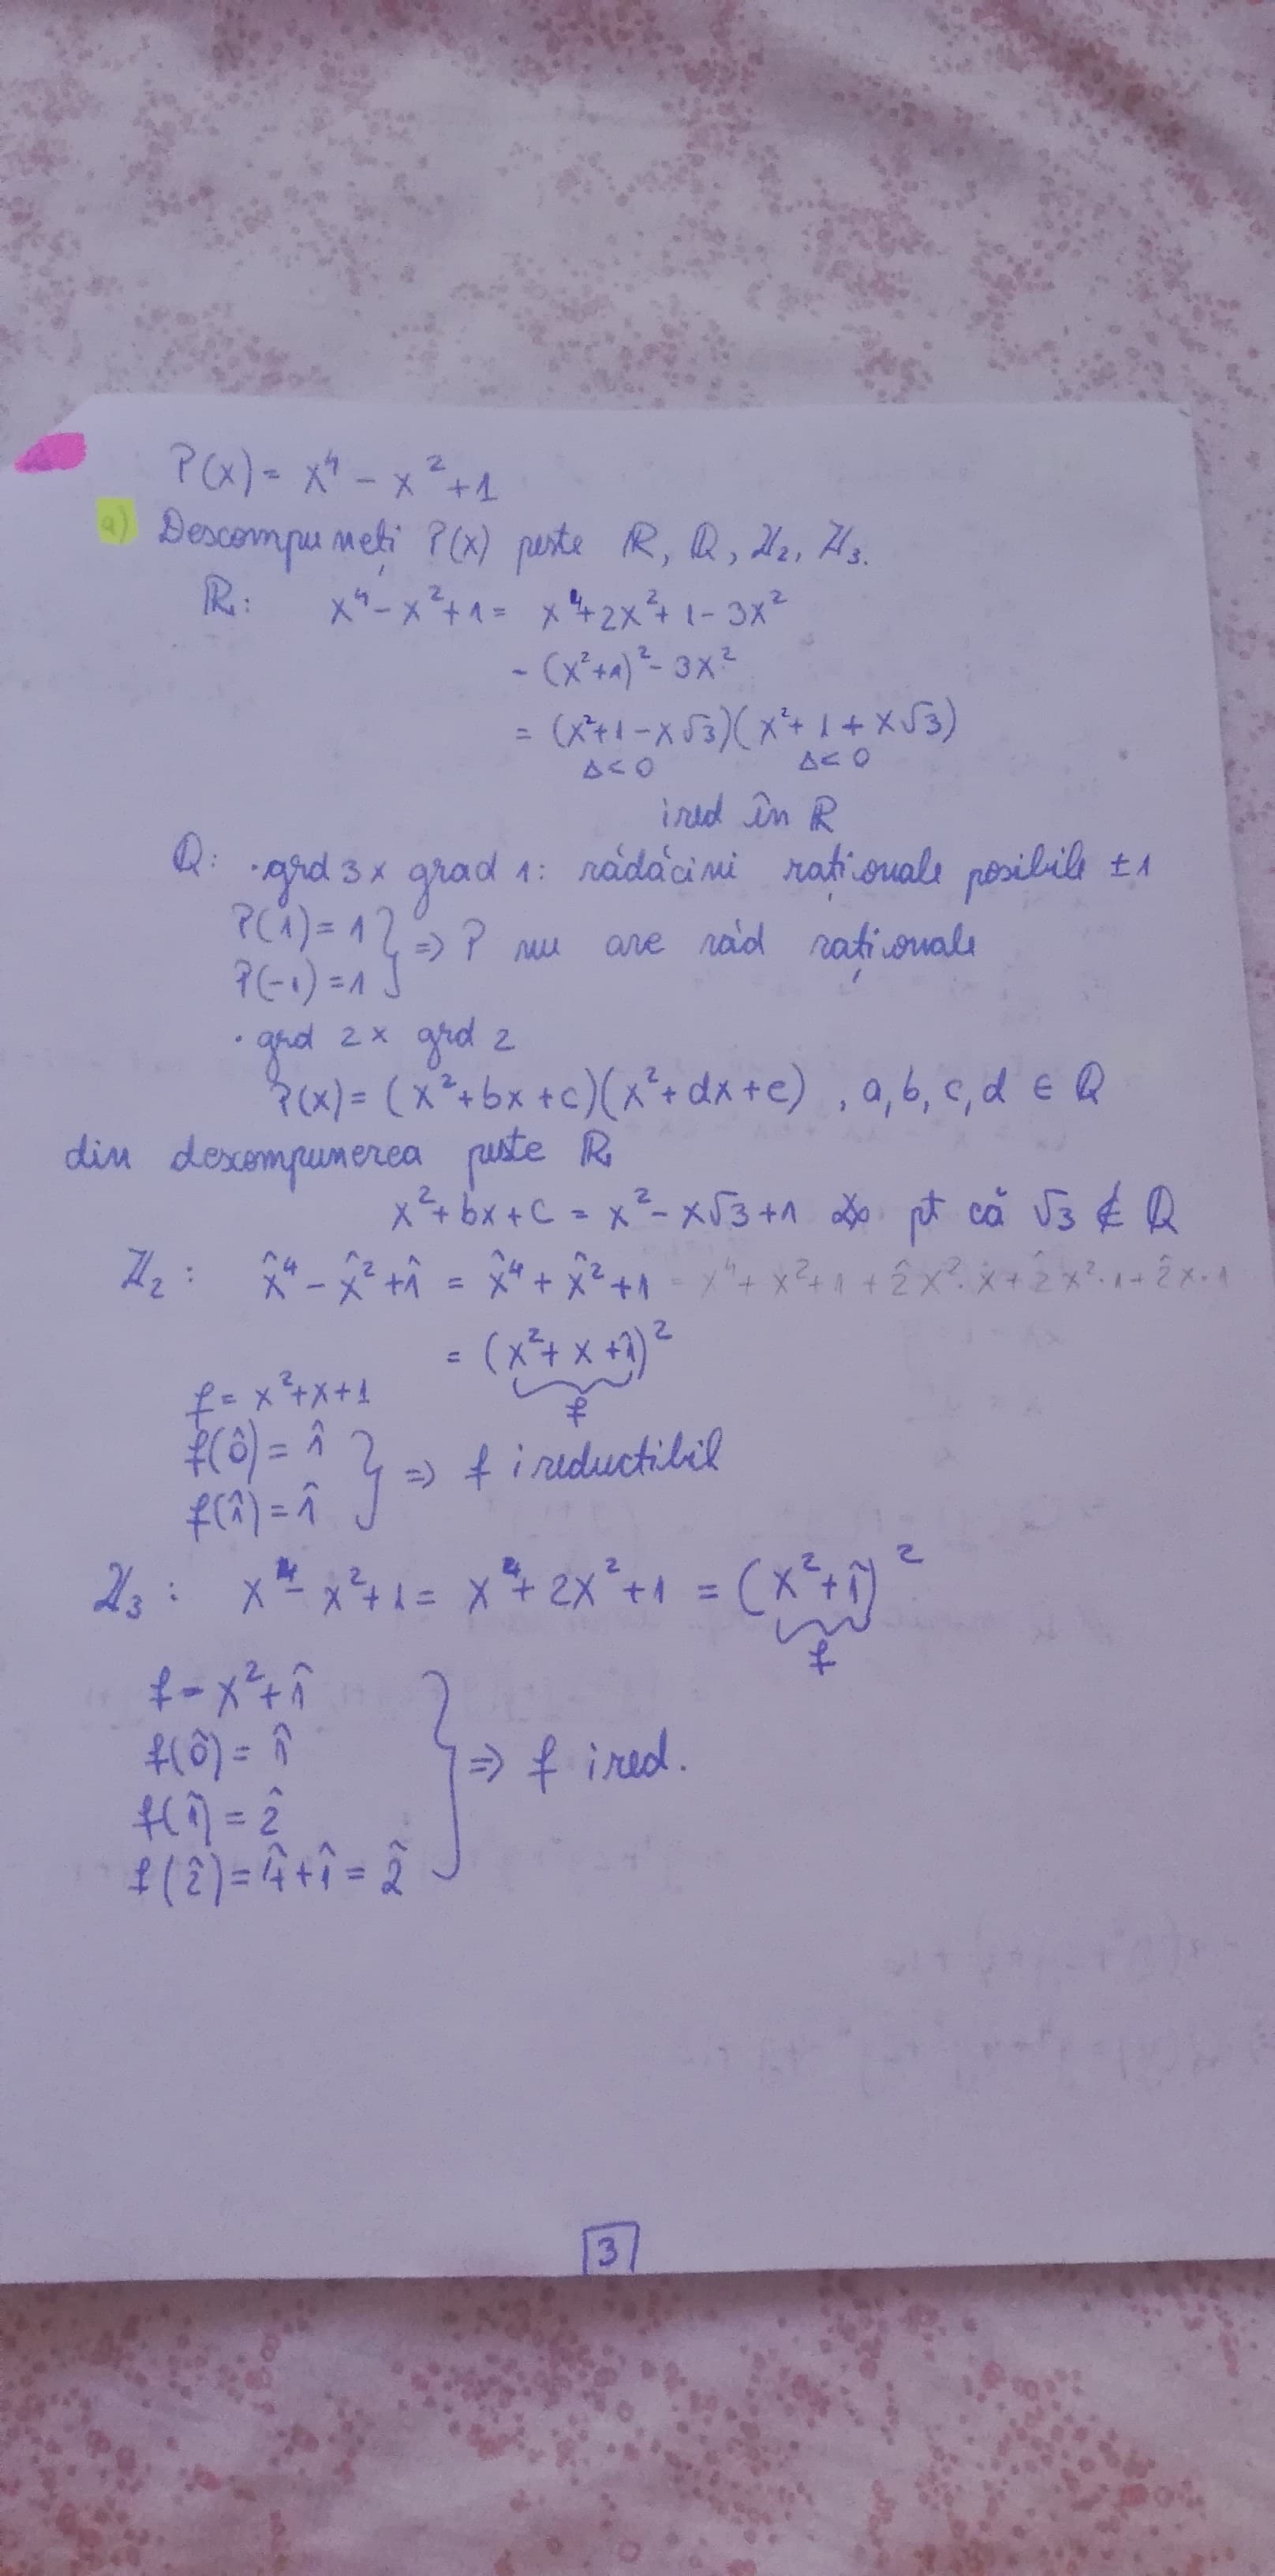 P(x) = x⁴ - x² + 1
a) Descompuneți P(x) peste ℝ, ℚ, ℤ₂, ℤ₃.
ℝ: x⁴ - x² + 1 = x⁴ + 2x² + 1 - 3x²
= (x²+1)² - 3x²
= (x²+1-x√3)(x²+1+x√3)
Δ<0 Δ<0
ired în ℝ
ℚ: ·grd 3 x grad 1: rădăcini raționale posibile ±1
P(1) = 1
P(-1) = 1 } ⇒ P nu are răd raționale
· grd 2 x grd 2
P(x) = (x²+bx+c)(x²+dx+e) , a, b, c, d ∈ ℚ
din descompunerea peste ℝ
x²+bx+c = x²-x√3+1 pt că √3 ∉ ℚ
ℤ₂: x̂⁴ - x̂² + 1̂ = x̂⁴ + x̂² + 1 = x⁴ + x² + 1 + 2̂x²·x + 2̂x²·1 + 2̂x·1
= (x² + x + 1̂)²
f
f = x²+x+1
f(0̂) = 1̂
f(1̂) = 1̂ } ⇒ f ireductibil
ℤ₃: x⁴ - x² + 1 = x⁴ + 2x² + 1 = (x² + 1̂)²
f
f = x² + 1̂
f(0̂) = 1̂
f(1̂) = 2̂ } ⇒ f ired.
f(2̂) = 4̂ + 1̂ = 2̂
3